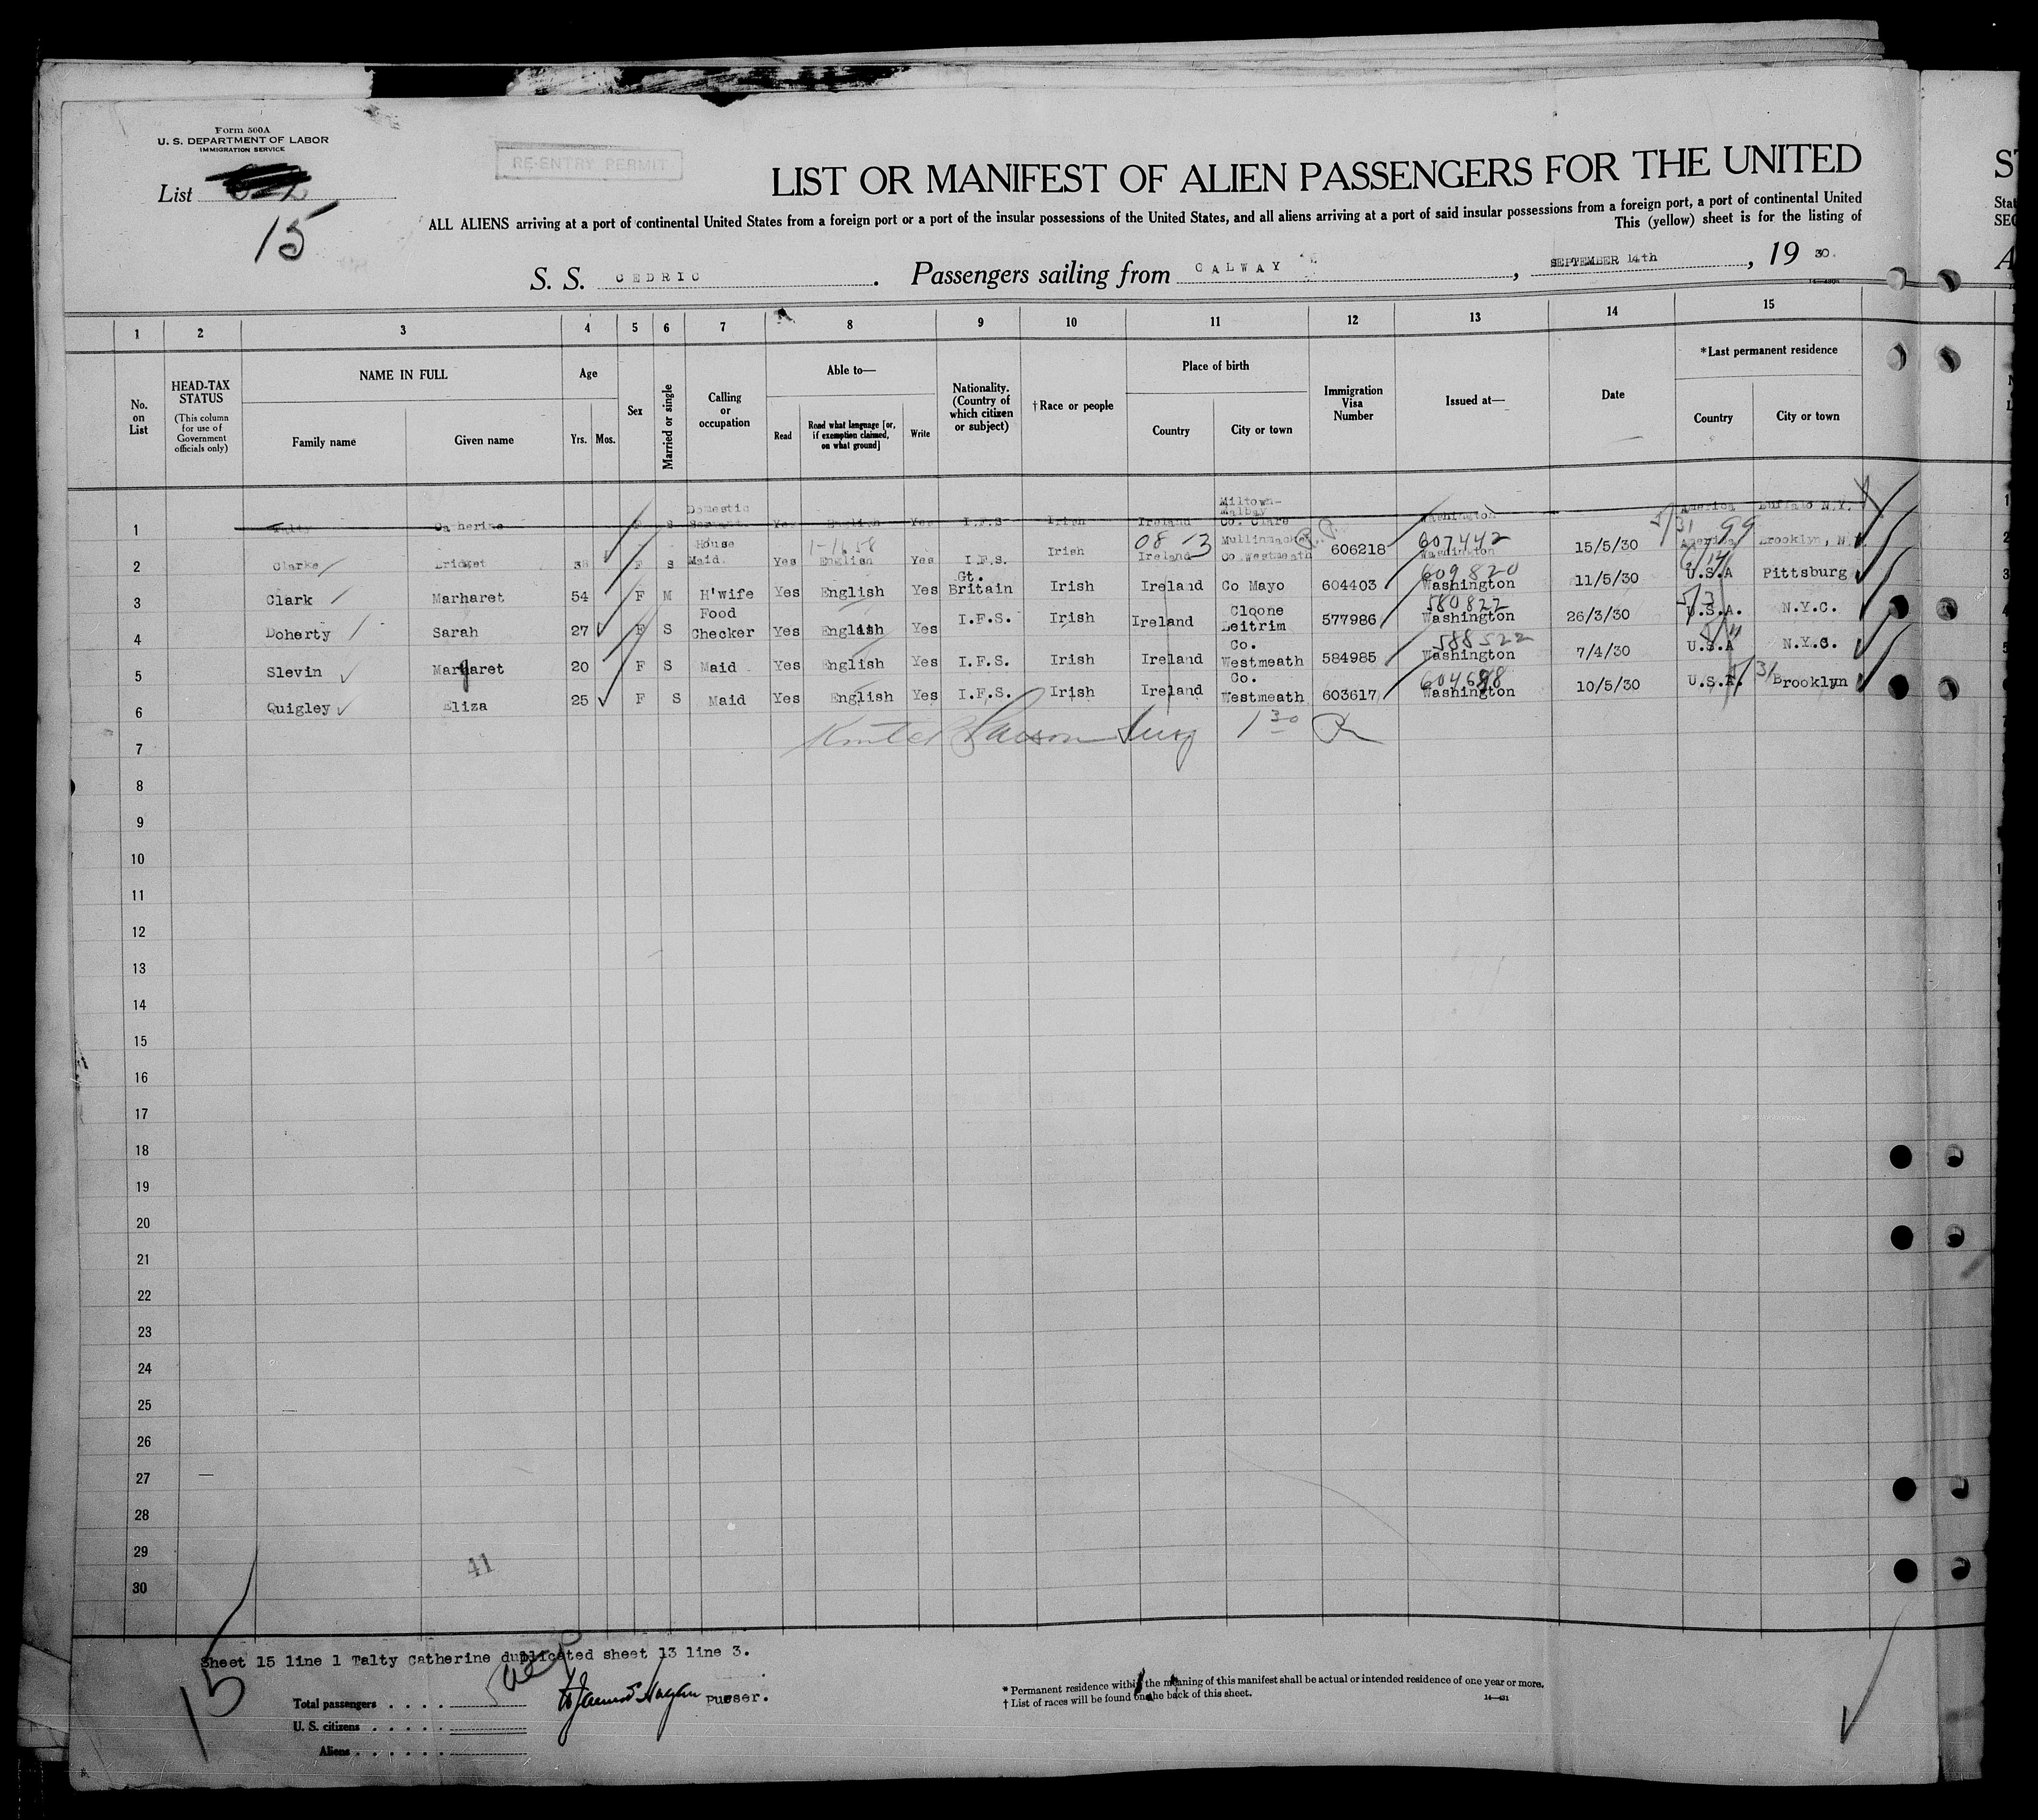 Form 500A
U. S. DEPARTMENT OF LABOR
IMMIGRATION SERVICE
RE-ENTRY PERMIT
List
15
LIST OR MANIFEST OF ALIEN PASSENGERS FOR THE UNITED
ALL ALIENS arriving at a port of continental United States from a foreign port or a port of the insular possessions of the United States, and all aliens arriving at a port of said insular possessions from a foreign port, a port of continental United
This (yellow) sheet is for the listing of
S. S. CEDRIC. Passengers sailing from GALWAY, SEPTEMBER 14th, 19 30.
1 2 3 4 5 6 7 8 9 10 11 12 13 14 15
No. on List
HEAD-TAX STATUS (This column for use of Government officials only)
NAME IN FULL Family name Given name
Age Yrs. Mos.
Sex
Married or single
Calling or occupation
Able to— Read Read what language [or, if exemption claimed, on what ground] Write
Nationality. (Country of which citizen or subject)
†Race or people
Place of birth Country City or town
Immigration Visa Number
Issued at—
Date
*Last permanent residence Country City or town
1 Talty Catherine F S Domestic Servant Yes English Yes I.F.S Irish Ireland Miltown-Malbay Co. Clare Washington America Buffalo N.Y.
2 Clarke Bridget F S House Maid. Yes English Yes I.F.S. Irish Ireland Co Westmeath 606218 607442 Washington 15/5/30 America Brooklyn, N
3 Clark Marharet 54 F M H'wife Yes English Yes Gt. Britain Irish Ireland Co Mayo 604403 609820 Washington 11/5/30 U.S.A Pittsburg
4 Doherty Sarah 27 F S Food Checker Yes English Yes I.F.S. Irish Ireland Cloone Leitrim 577986 580822 Washington 26/3/30 U.S.A. N.Y.C.
5 Slevin Margaret 20 F S Maid Yes English Yes I.F.S. Irish Ireland Co. Westmeath 584985 588522 Washington 7/4/30 U.S.A N.Y.C.
6 Quigley Eliza 25 F S Maid Yes English Yes I.F.S. Irish Ireland Co. Westmeath 603617 Washington 10/5/30 U.S.A. Brooklyn
7
8
9
10
11
12
13
14
15
16
17
18
19
20
21
22
23
24
25
26
27
28
29
30
41
Sheet 15 line 1 Talty Catherine duplicated sheet 13 line 3.
15
Total passengers . . . .
Purser.
U. S. citizens . . . . .
Aliens . . . . . .
* Permanent residence within the meaning of this manifest shall be actual or intended residence of one year or more.
† List of races will be found on the back of this sheet.